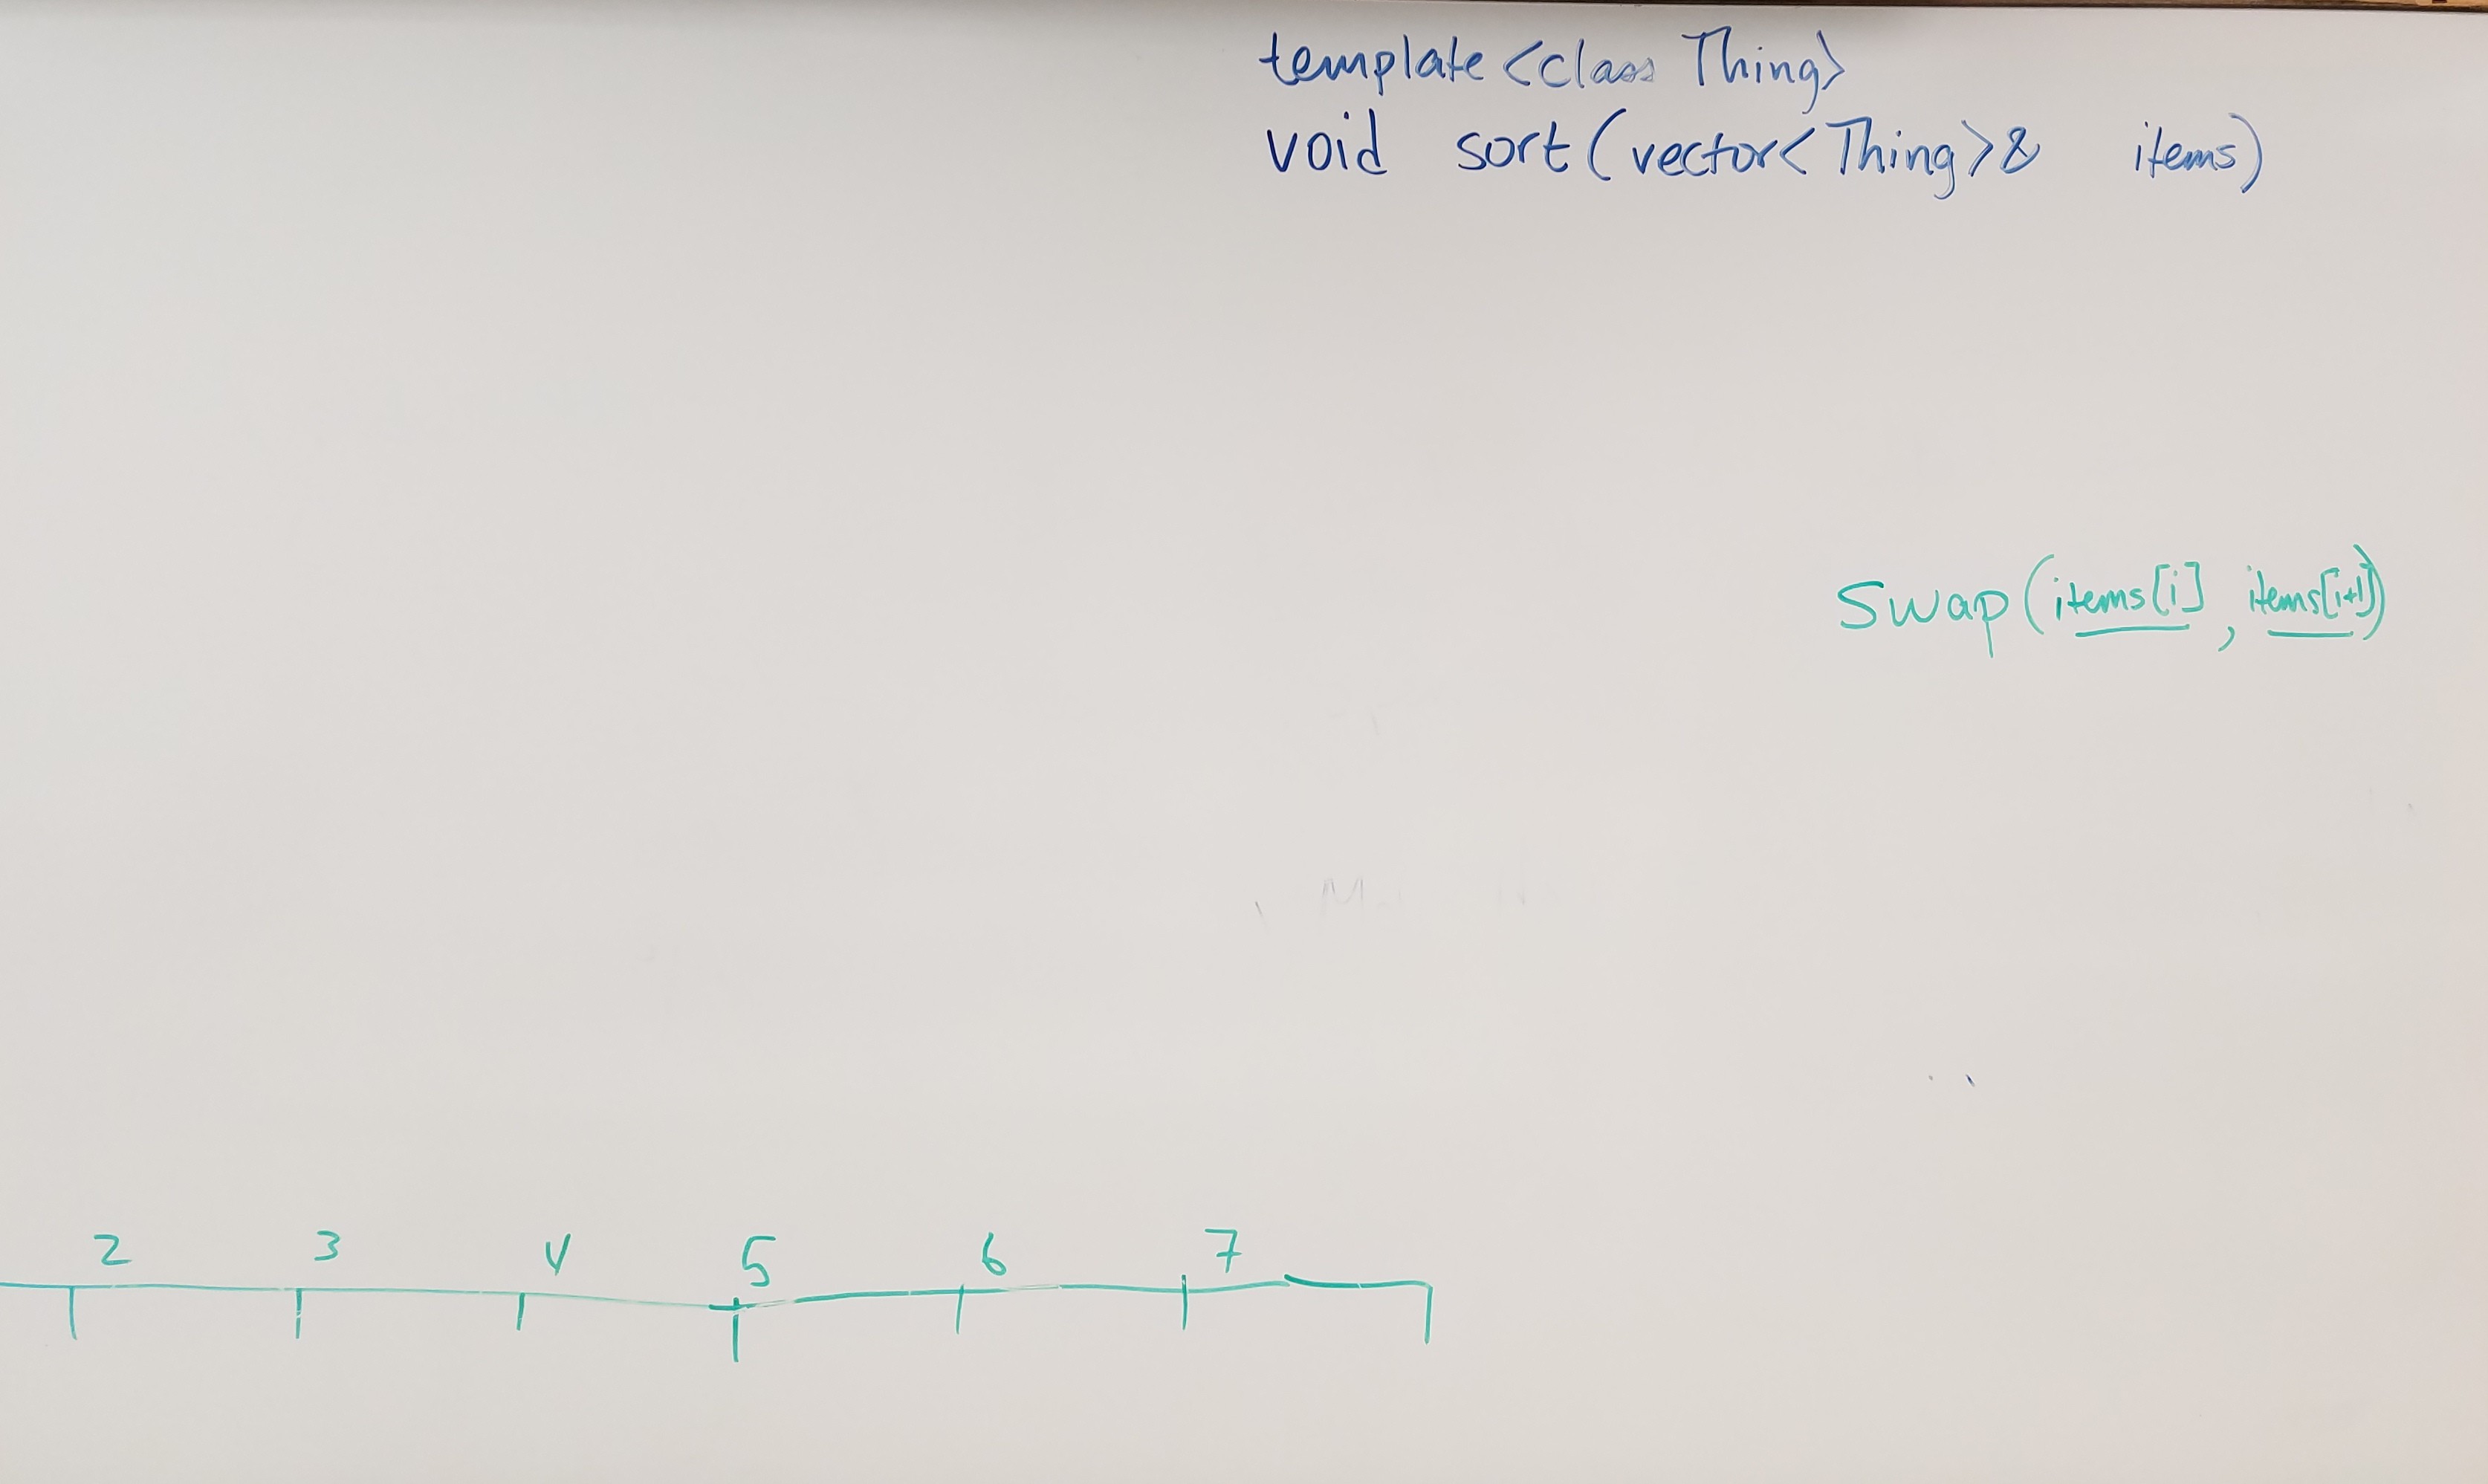 template <class Thing>
void sort(vector<Thing>& items)
Swap(items[i], items[i+1])
2 3 4 5 6 7